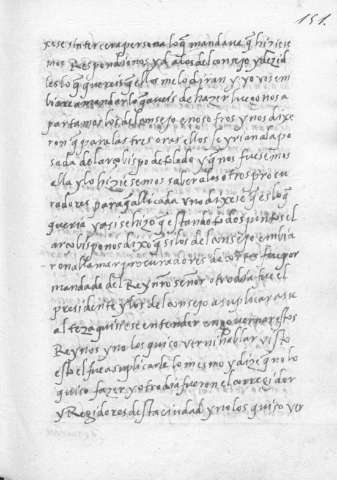 151.
xese sin tercera persona lo q̃ mandava q̃ hiziese
mos Respondionos ya a los del consejo y dezid
les lo q̃ quereis q̃ ellos me lo diran y yo os em
biare a mandar lo q̃ aveis de hazer luego nos a
partamos los del consejo e nosotros y nos dixe
ron q̃ para las tres oras ellos se yrian a la po
sada del arçobispo de toledo y q̃ nos fuesemos
a ella y lo hiziesemos saber a los otros procu
radores para q̃ alli cada vno dixese q̃ es lo q̃
queria y asi se hizo q̃ estando todos juntos el
arçobispo nos dixo q̃ si los del consejo embia
ron a llamar procuradores de cortes fue por
mandado del Rey nr̃o señor otro dia fue el
presidente y los del consejo a suplicar a su
alteza quisiese entender en governar estos
Reynos y no los quiso ver ni hablar visto
esto el fue a suplicarle lo mesmo y dize q̃ no lo
quiso fazer y otro dia fueron el corregidor
y Regidores desta ciudad y no los quiso ver